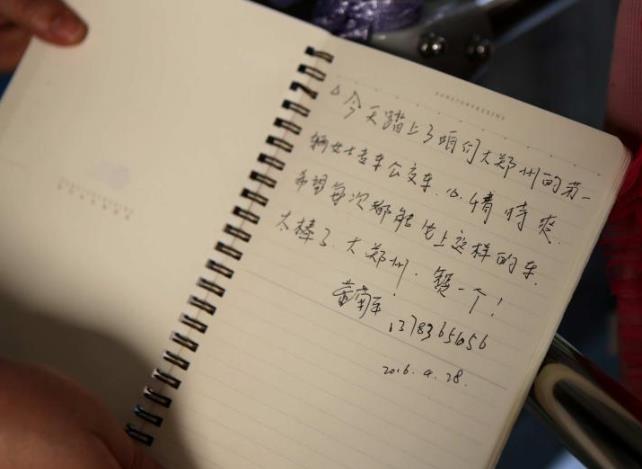 今天踏上了咱们大郑州的第一
辆女士专车公交车，心情特爽．
希望每次都能坐上这样的车．
太棒了大郑州．赞一个！
2016.4.28.